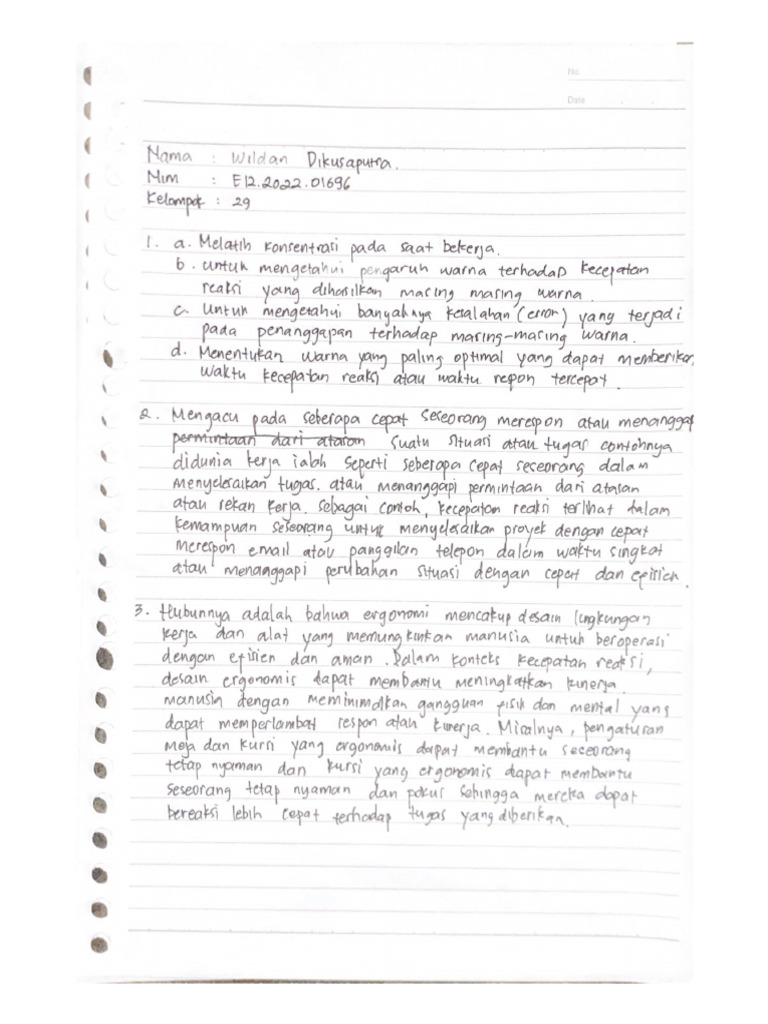 No.
Date
Nama : Wildan Dikusaputra.
Nim : E12.2022.01696
Kelompok : 29
1. a. Melatih konsentrasi pada saat bekerja.
b. untuk mengetahui pengaruh warna terhadap kecepatan
reaksi yang dihasilkan masing masing warna.
c. Untuk mengetahui banyaknya kesalahan (error) yang terjadi
pada penanggapan terhadap masing-masing warna.
d. Menentukan warna yang paling optimal yang dapat memberikan
waktu kecepatan reaksi atau waktu repon tercepat.
2. Mengacu pada seberapa cepat seseorang merespon atau menanggap
permintaan dari atasan suatu situasi atau tugas contohnya
didunia kerja ialah seperti seberapa cepat seceorang dalam
menyelesaikan tugas. atau menanggapi permintaan dari atasan
atau rekan kerja. sebagai contoh, kecepatan reaksi terlihat dalam
kemampuan seseorang untuk menyelesaikan proyek dengan cepat
merespon email atau panggilan telepon dalam waktu singkat
atau menanggapi perubahan situasi dengan cepat dan efisien.
3. Hubunnya adalah bahwa ergonomi mencakup desain lingkungan
kerja dan alat yang memungkinkan manusia untuk beroperasi
dengan efisien dan aman. Dalam konteks kecepatan reaksi,
desain ergonomis dapat membantu meningkatkan kinerja
manusia dengan meminimalkan gangguan fisik dan mental yang
dapat memperlambat respon atau kinerja. Misalnya, pengaturan
meja dan kursi yang ergonomis dapat membantu seceorang
tetap nyaman dan kursi yang ergonomis dapat membantu
seseorang tetap nyaman dan pokus sehingga mereka dapat
bereaksi lebih cepat terhadap tugas yang diberikan.